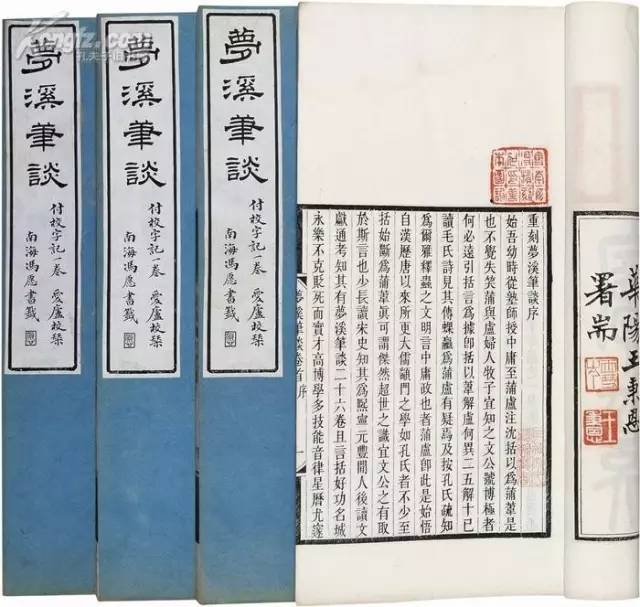 夢溪筆談
付校字記一卷 愛廬校栞
南海馮愿書籤
夢溪筆談
付校字記一卷 愛廬校栞
南海馮愿書籤
夢溪筆談
付校字記一卷 愛廬校栞
南海馮愿書籤
華陽王秉恩
署耑
重刻夢溪筆談序
始吾幼時從塾師授中庸至蒲盧注沈括以爲蒲葦是
也不覺失笑蒲與盧婦人牧子宜知之文公號博極者
何必遠引括言爲據卽括以葦解盧何異二五解十已
讀毛氏詩見其傳蜾蠃爲蒲盧有疑焉及按孔氏疏知
爲爾雅釋蟲之文明言中庸政也者蒲盧卽此是始悟
自漢歷唐以來所更大儒顓門之學如孔氏者不少至
括始斷爲蒲葦眞可謂傑然超世之識宜文公之有取
於斯言也少長讀宋史知其爲熙寧元豐間人後讀文
獻通考知其有夢溪筆談二十六卷且言括好功名城
永樂不克貶死而實才高博學多技能音律星曆尤邃
夢溪筆談卷首序
一